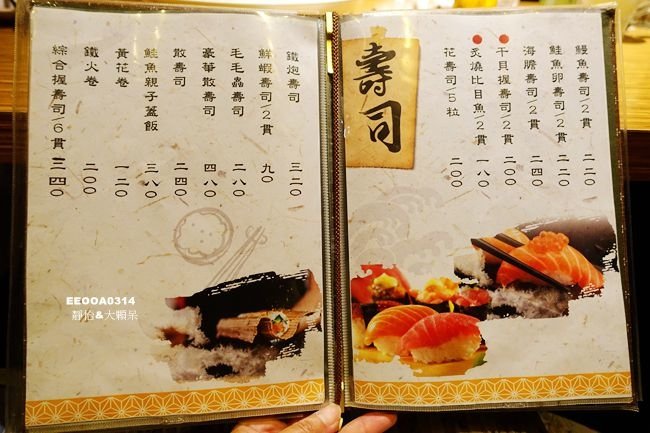 壽司
鰻魚壽司/2貫 二二〇
鮭魚卵壽司/2貫 二二〇
海膽壽司/2貫 二四〇
干貝握壽司/2貫 二〇〇
炙燒比目魚/2貫 一八〇
花壽司/5粒 二〇〇
鐵炮壽司 三二〇
鮮蝦壽司/2貫 九〇
毛毛蟲壽司 二八〇
豪華散壽司 四八〇
散壽司 二四〇
鮭魚親子蓋飯 三八〇
黃花卷 一二〇
鐵火卷 二〇〇
綜合握壽司/6貫 三四〇
EEOOA0314
靜怡&大顆呆